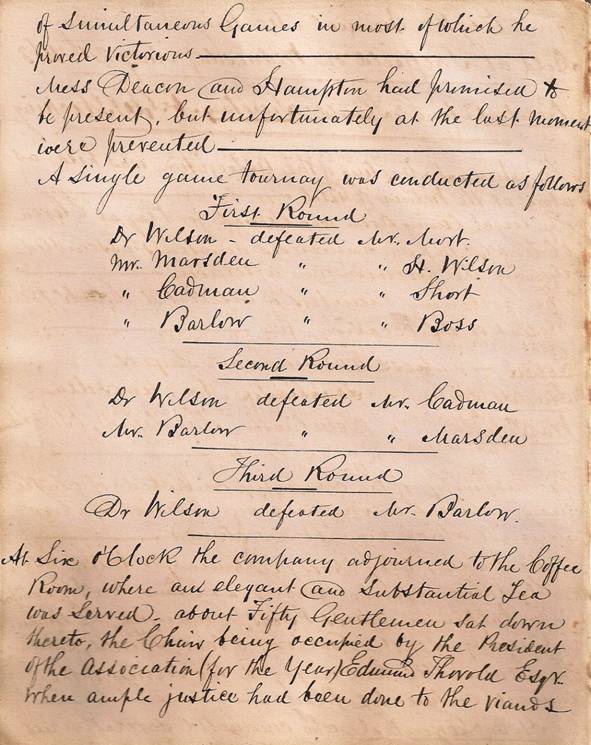 of Simultaneous Games in most of which he
proved Victorious
Mess Deacon and Hampton had promised to
be present, but unfortunately at the last moment
were prevented
A single game tournay was conducted as follows
First Round
Dr Wilson - defeated Mr. Mort.
Mr. Marsden " " H. Wilson
" Cadman " " Short
" Barlow " " Boss
Second Round
Dr Wilson defeated Mr. Cadman
Mr. Barlow " " Marsden
Third Round
Dr Wilson defeated Mr. Barlow.
At Six o'Clock the company adjourned to the Coffee
Room, where an elegant and Substantial Tea
was Served - about Fifty Gentlemen sat down
thereto, the Chair being occupied by the President
of the Association (for the Year) Edmund Thorold Esqr.
When ample justice had been done to the viands